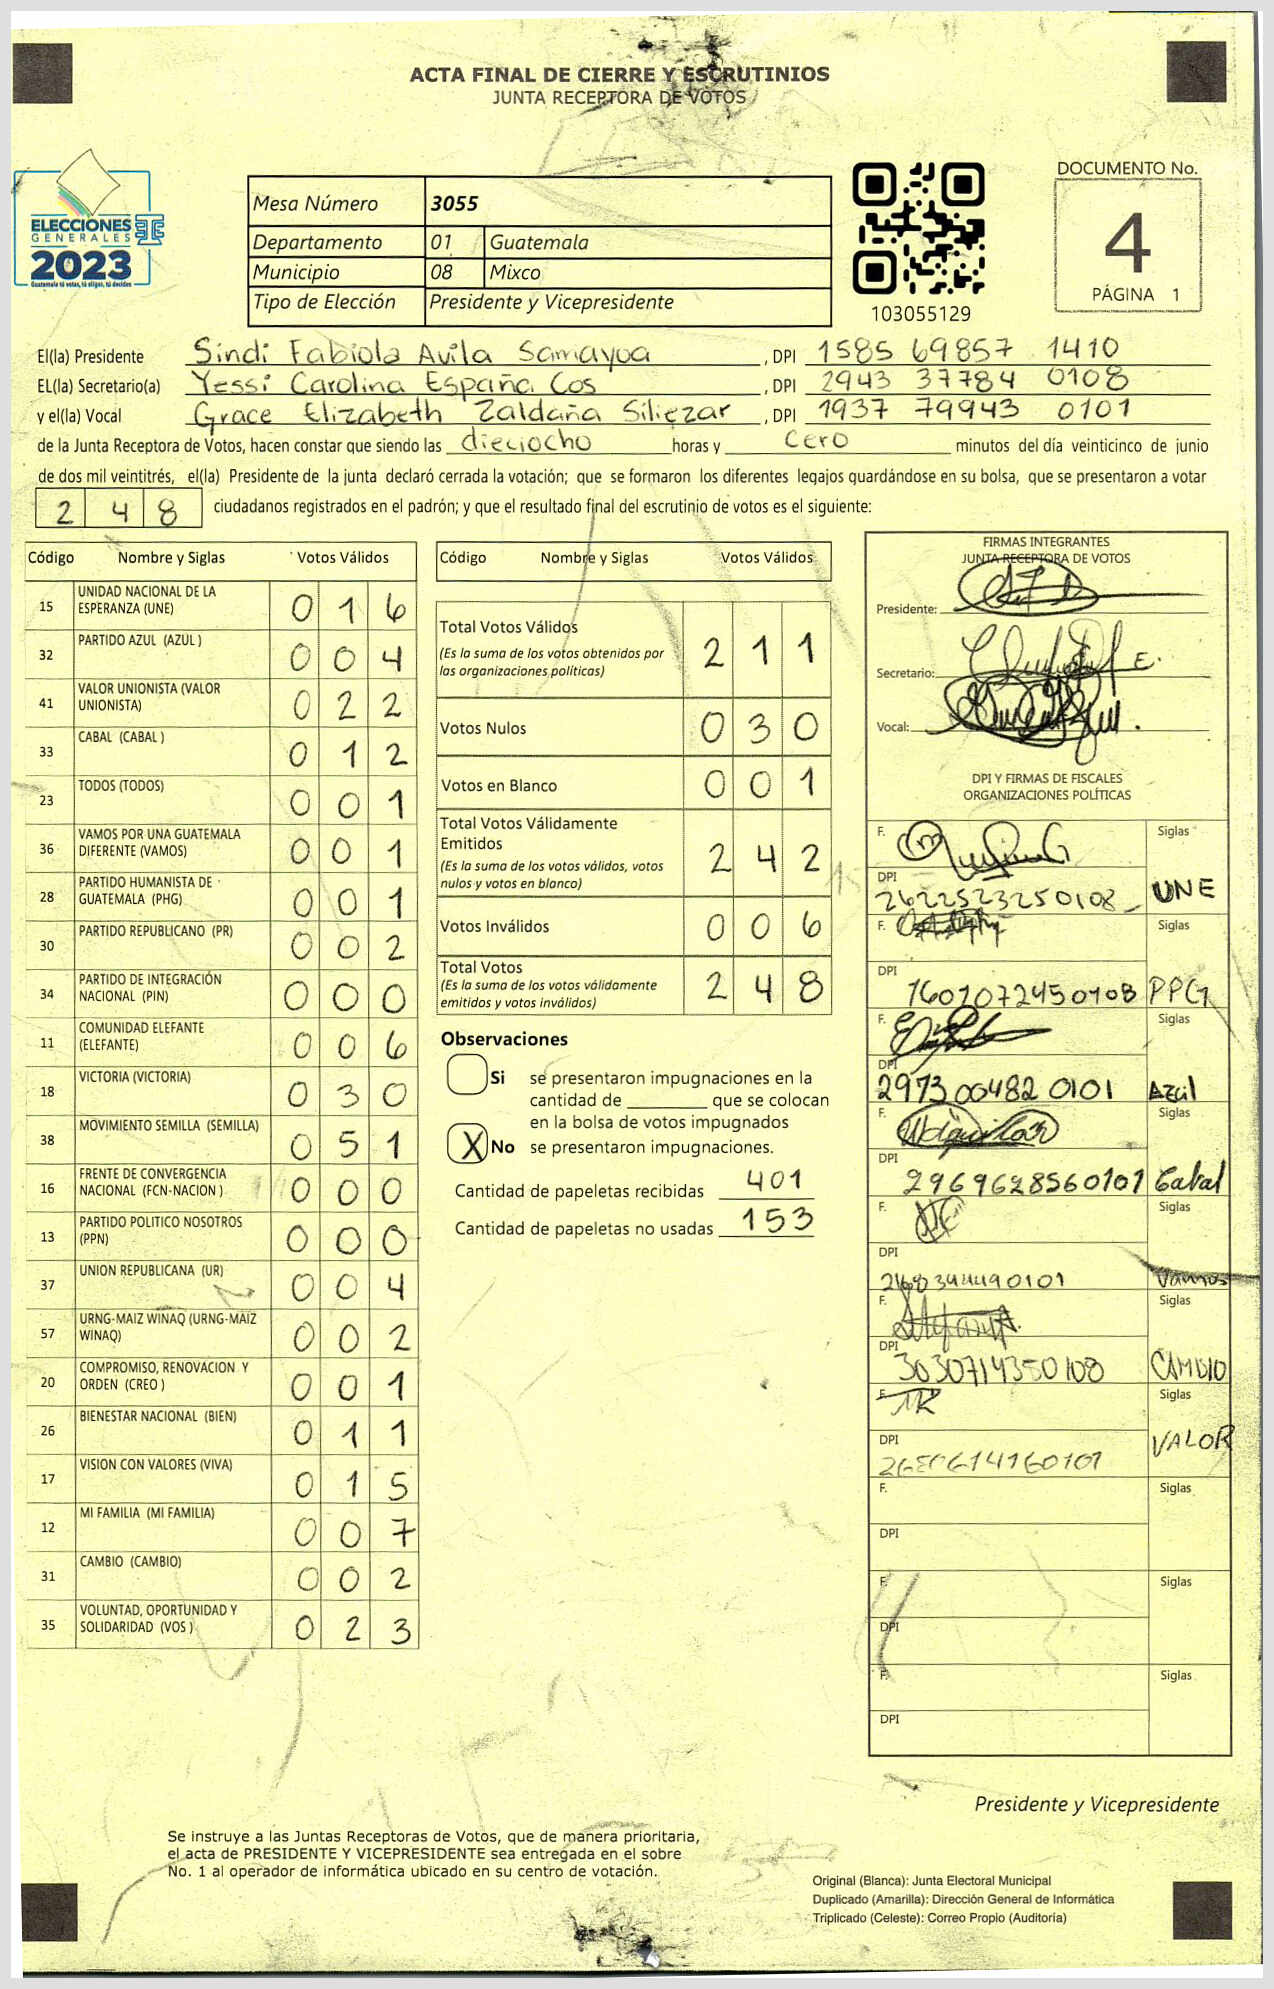 ACTA FINAL DE CIERRE Y ESCRUTINIOS
JUNTA RECEPTORA DE VOTOS
ELECCIONES
GENERALES
2023
Guatemala tú votas, tú eliges, tú decides
Mesa Número 3055
Departamento 01 Guatemala
Municipio 08 Mixco
Tipo de Elección Presidente y Vicepresidente
103055129
DOCUMENTO No.
4
PÁGINA 1
El(la) Presidente Sindi Fabiola Avila Samayoa, DPI 1585 69857 1410
EL(la) Secretario(a) Yessi Carolina España Cos, DPI 2943 37784 0108
y el(la) Vocal Grace Elizabeth Zaldaña Siliezar, DPI 1937 79943 0101
de la Junta Receptora de Votos, hacen constar que siendo las dieciocho horas y cero minutos del día veinticinco de junio
de dos mil veintitrés, el(la) Presidente de la junta declaró cerrada la votación; que se formaron los diferentes legajos guardándose en su bolsa, que se presentaron a votar
2 4 8 ciudadanos registrados en el padrón; y que el resultado final del escrutinio de votos es el siguiente:
Código Nombre y Siglas Votos Válidos
15 UNIDAD NACIONAL DE LA ESPERANZA (UNE) 0 1 6
32 PARTIDO AZUL (AZUL ) 0 0 4
41 VALOR UNIONISTA (VALOR UNIONISTA) 0 2 2
33 CABAL (CABAL ) 0 1 2
23 TODOS (TODOS) 0 0 1
36 VAMOS POR UNA GUATEMALA DIFERENTE (VAMOS) 0 0 1
28 PARTIDO HUMANISTA DE GUATEMALA (PHG) 0 0 1
30 PARTIDO REPUBLICANO (PR) 0 0 2
34 PARTIDO DE INTEGRACIÓN NACIONAL (PIN) 0 0 0
11 COMUNIDAD ELEFANTE (ELEFANTE) 0 0 6
18 VICTORIA (VICTORIA) 0 3 0
38 MOVIMIENTO SEMILLA (SEMILLA) 0 5 1
16 FRENTE DE CONVERGENCIA NACIONAL (FCN-NACION ) 0 0 0
13 PARTIDO POLITICO NOSOTROS (PPN) 0 0 0
37 UNION REPUBLICANA (UR) 0 0 4
57 URNG-MAIZ WINAQ (URNG-MAIZ WINAQ) 0 0 2
20 COMPROMISO, RENOVACION Y ORDEN (CREO ) 0 0 1
26 BIENESTAR NACIONAL (BIEN) 0 1 1
17 VISION CON VALORES (VIVA) 0 1 5
12 MI FAMILIA (MI FAMILIA) 0 0 7
31 CAMBIO (CAMBIO) 0 0 2
35 VOLUNTAD, OPORTUNIDAD Y SOLIDARIDAD (VOS ) 0 2 3
Código Nombre y Siglas Votos Válidos
Total Votos Válidos 2 1 1
(Es la suma de los votos obtenidos por
las organizaciones políticas)
Votos Nulos 0 3 0
Votos en Blanco 0 0 1
Total Votos Válidamente
Emitidos 2 4 2
(Es la suma de los votos válidos, votos
nulos y votos en blanco)
Votos Inválidos 0 0 6
Total Votos 2 4 8
(Es la suma de los votos válidamente
emitidos y votos inválidos)
Observaciones
Si se presentaron impugnaciones en la
cantidad de ________ que se colocan
en la bolsa de votos impugnados
X No se presentaron impugnaciones.
Cantidad de papeletas recibidas 401
Cantidad de papeletas no usadas 153
FIRMAS INTEGRANTES
JUNTA RECEPTORA DE VOTOS
Presidente:
Secretario:
Vocal:
DPI Y FIRMAS DE FISCALES
ORGANIZACIONES POLÍTICAS
F. Siglas
DPI 2622523250108 UNE
F. Siglas
DPI 1601072450108 PPG
F. Siglas
DPI 2973 00482 0101 Azul
F. Siglas
DPI 2969628560101 Cabal
F. Siglas
DPI Vamos
F. Siglas
DPI 3030714350108 CAMBIO
F. Siglas
DPI VALOR
F. Siglas
DPI
F. Siglas
DPI
F. Siglas
DPI
Presidente y Vicepresidente
Se instruye a las Juntas Receptoras de Votos, que de manera prioritaria,
el acta de PRESIDENTE Y VICEPRESIDENTE sea entregada en el sobre
No. 1 al operador de informática ubicado en su centro de votación.
Original (Blanca): Junta Electoral Municipal
Duplicado (Amarilla): Dirección General de Informática
Triplicado (Celeste): Correo Propio (Auditoría)